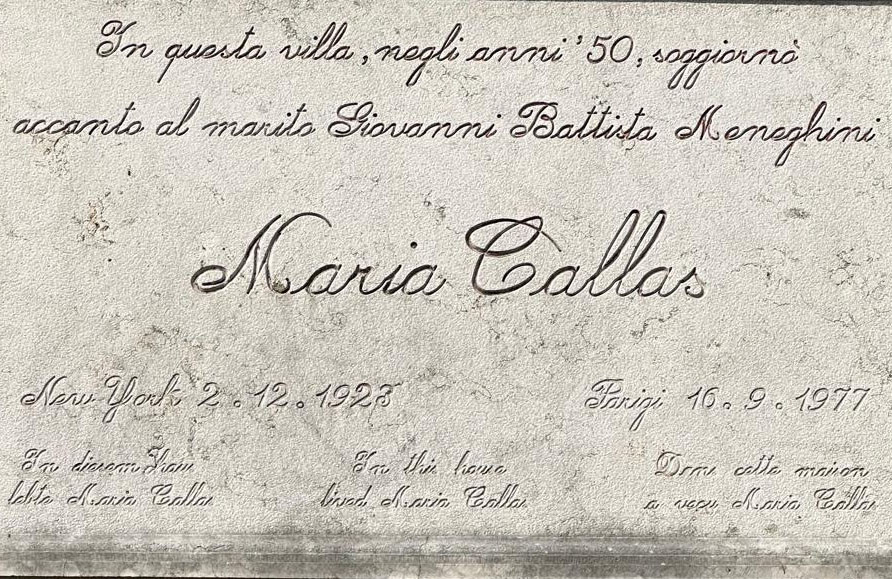 In questa villa, negli anni '50, soggiornò
accanto al marito Giovanni Battista Meneghini
Maria Callas
New York 2.12.1923
Parigi 16.9.1977
In diesem Haus
lebte Maria Callas
In this house
lived Maria Callas
Dans cette maison
a vécu Maria Callas